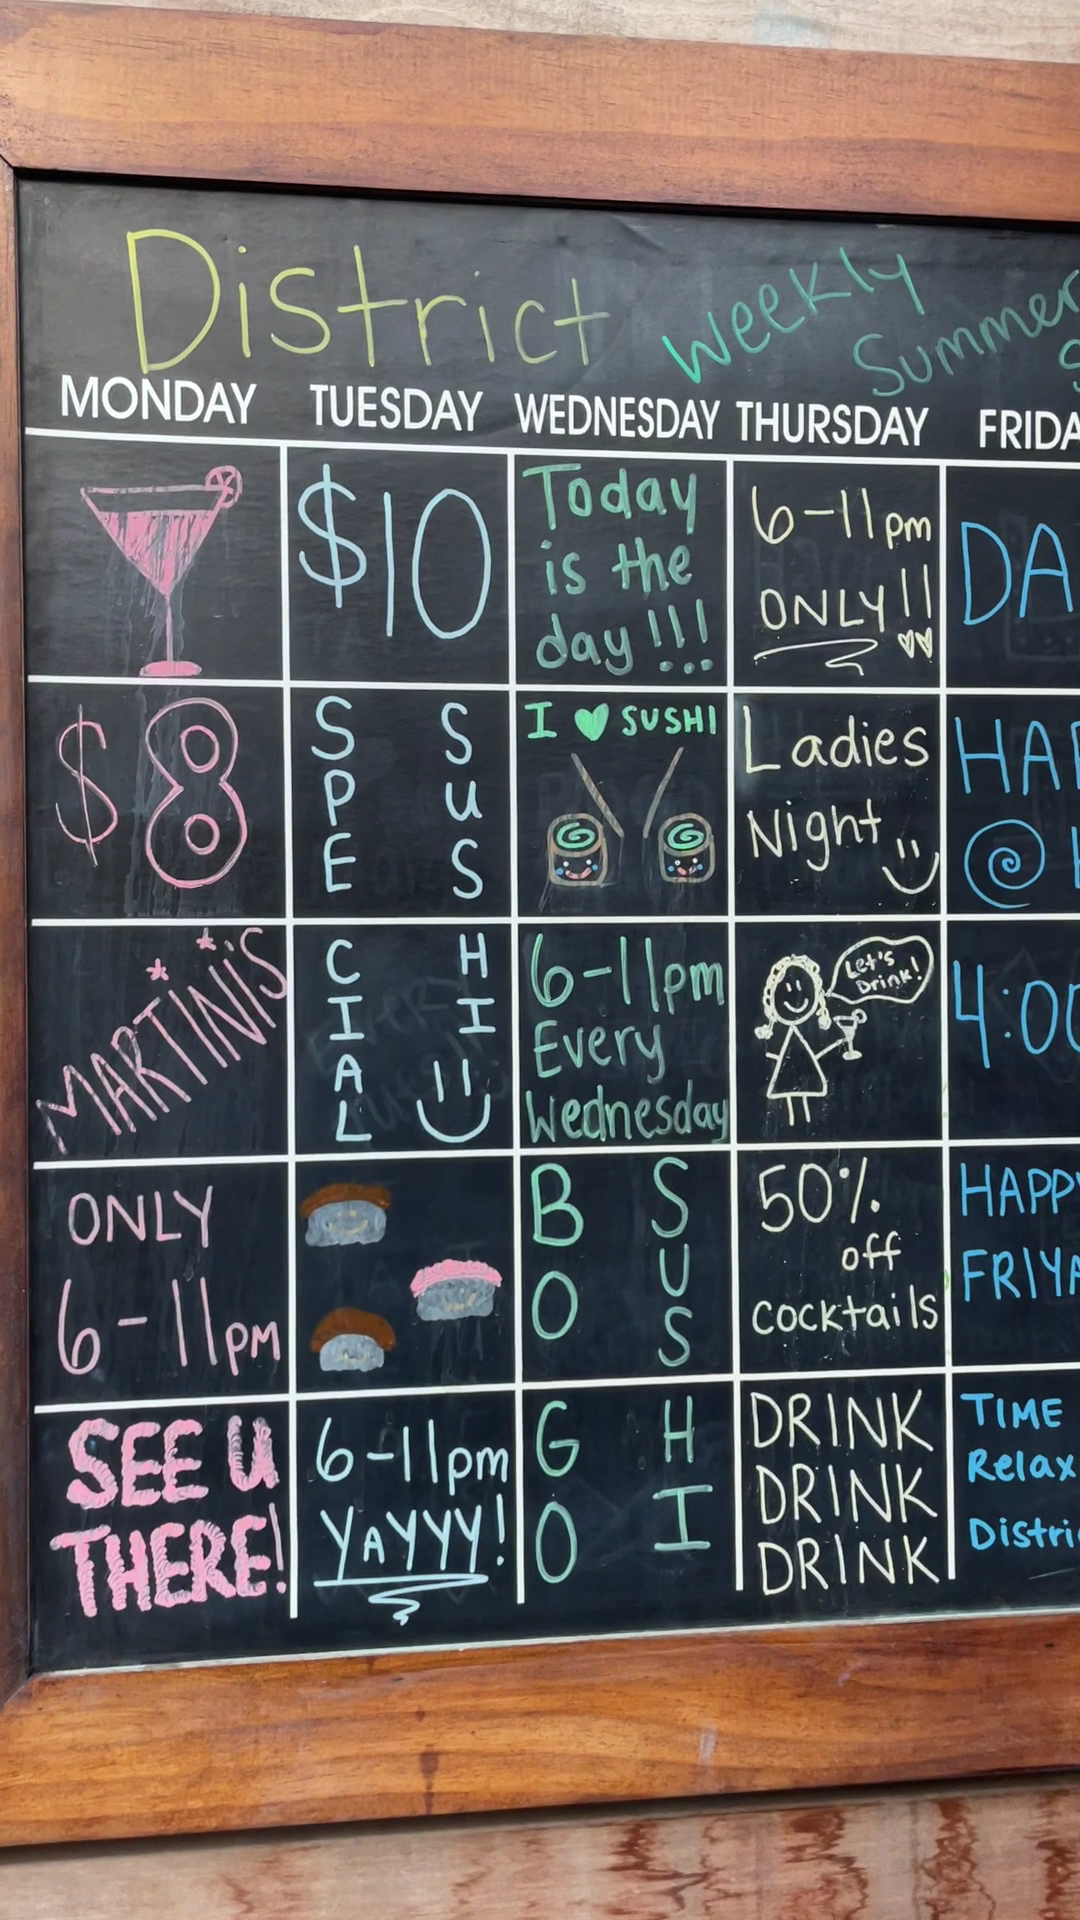 District
Weekly
Summer
MONDAY
$8
MARTINIS
ONLY
6-11pm
SEE U
THERE!
TUESDAY
$10
SPECIAL
SUSHI
6-11pm
YAYYY!
WEDNESDAY
Today
is the
day!!!
I ♥ SUSHI
6-11pm
Every
Wednesday
BOGO
SUSHI
THURSDAY
6-11pm
ONLY!!
Ladies
Night
Let's
Drink!
50%
off
cocktails
DRINK
DRINK
DRINK
FRIDA
DA
@
4:00
HAPPY
FRIYA
TIME
Relax
Distri